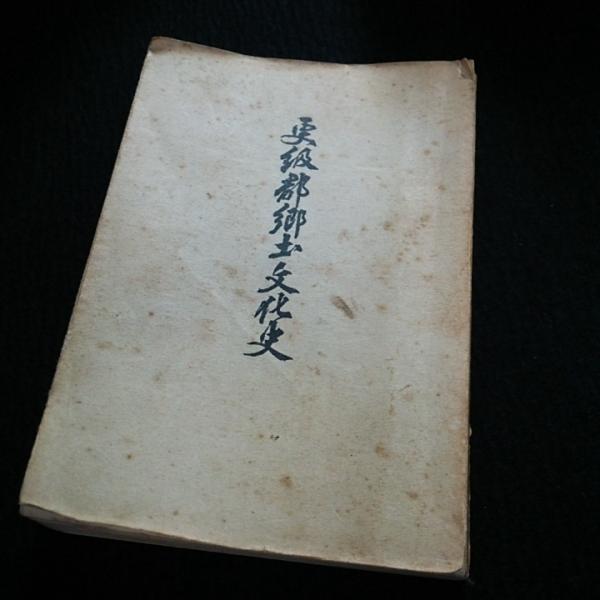 更級郡郷土文化史